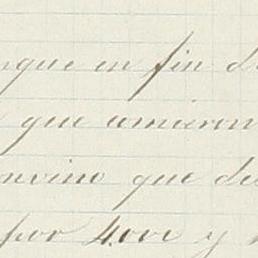 nque en fin de
que vinieron
onvino que de
por 4.000 y